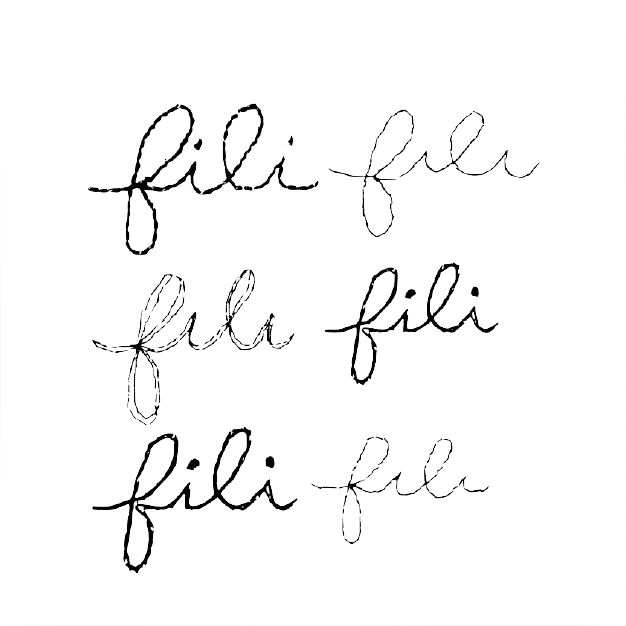 fili fili
fili fili
fili fili